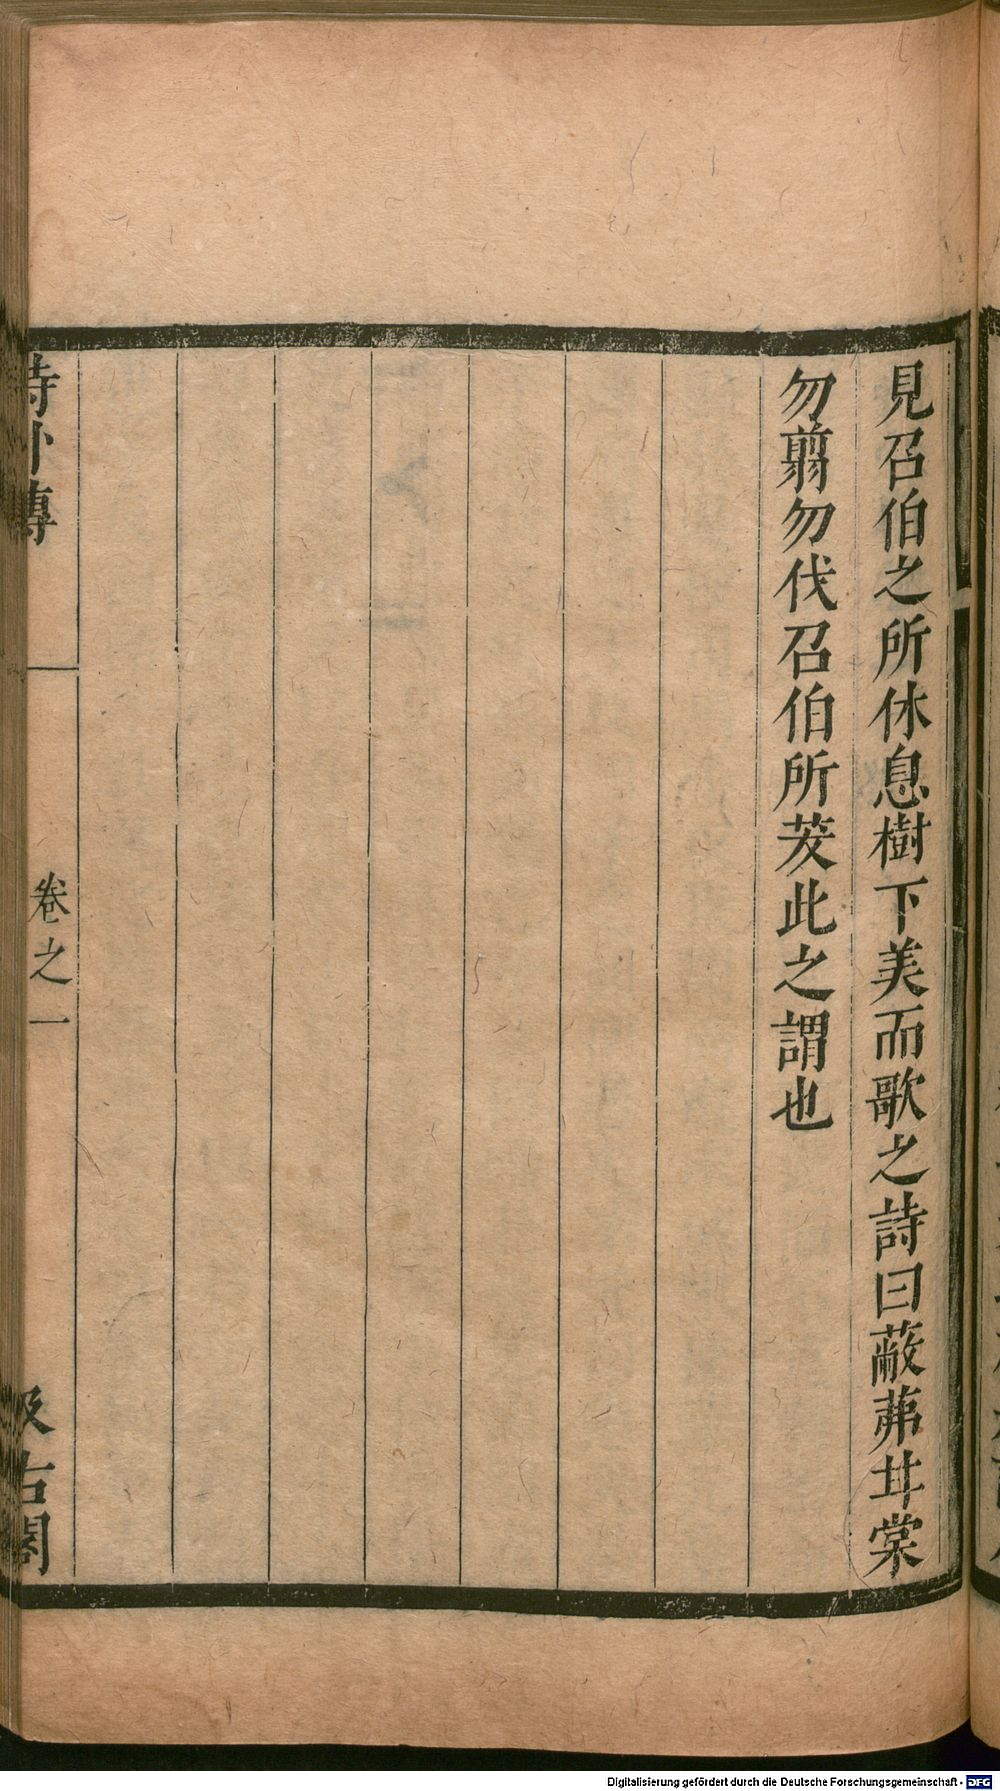 見召伯之所休息樹下美而歌之詩曰蔽茀甘棠
勿翦勿伐召伯所茇此之謂也
詩外傳
卷之一
汲古閣
Digitalisierung gefördert durch die Deutsche Forschungsgemeinschaft - DFG